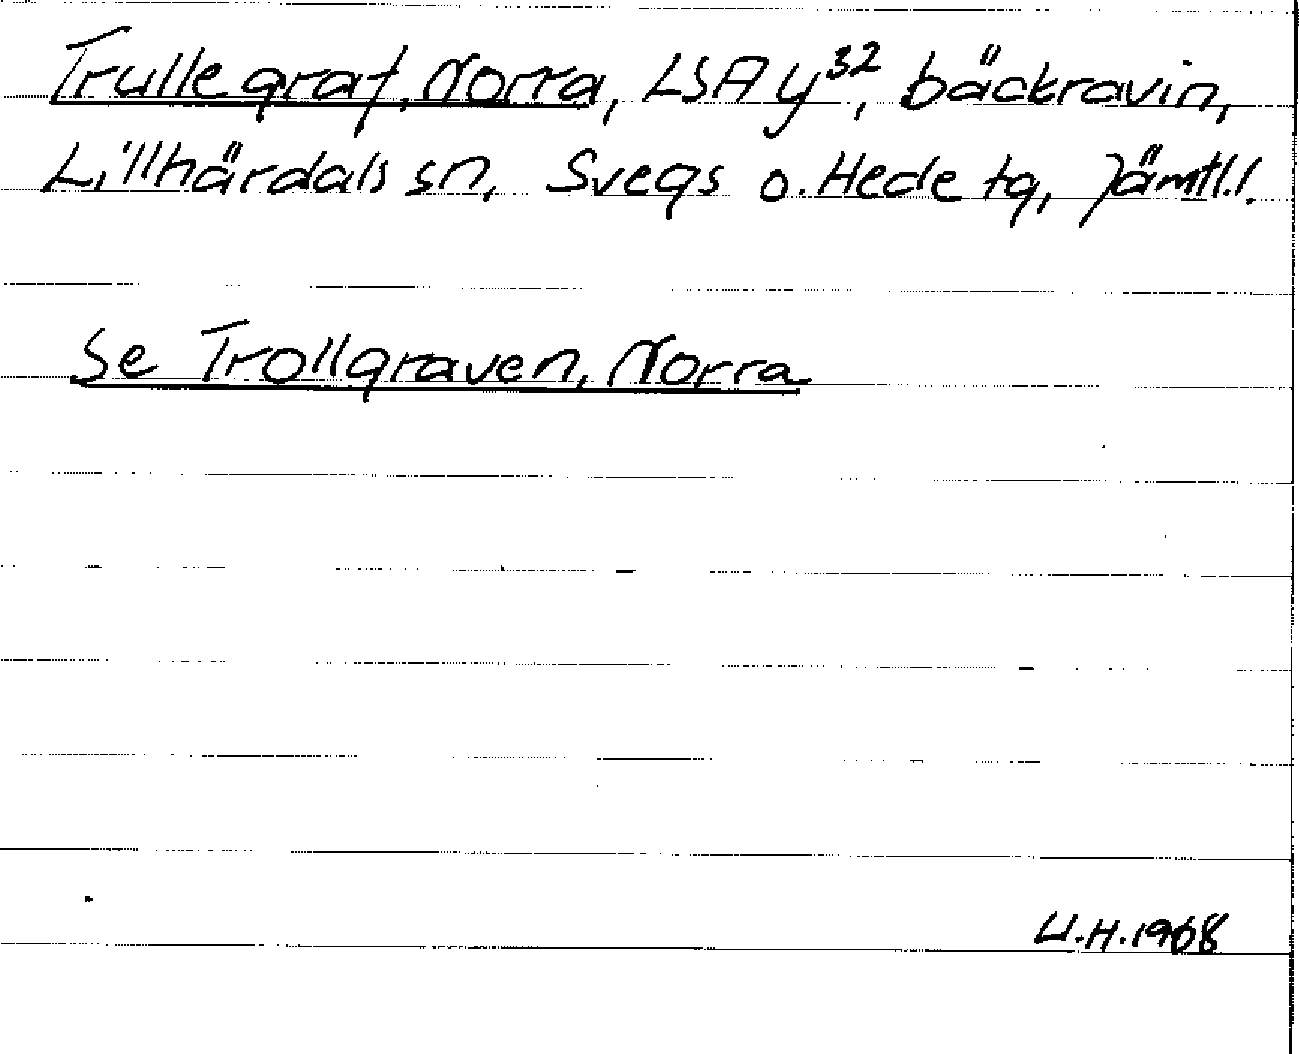 Trullegraf, Norra, LSA y³², bäckravin,
Lillhärdals sn, Svegs o. Hede tg, Jämtl.l.
Se Trollgraven, Norra
U.H. 1968